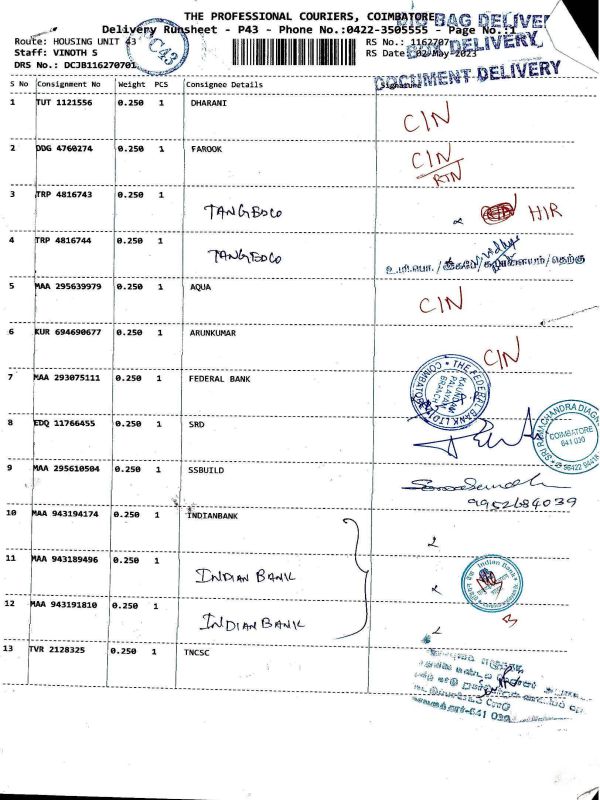 THE PROFESSIONAL COURIERS, COIMBATORE
BIG BAG DELIVERY
Delivery Runsheet - P43 - Phone No.:0422-3505555 - Page No.:1
Route: HOUSING UNIT 43
C43
RS No.: 116270701
DELIVERY,
Staff: VINOTH S
RS Date: 02-May-2023
DRS No.: DCJB116270701
DOCUMENT DELIVERY
S No Consignment No Weight PCS Consignee Details Signature
1 TUT 1121556 0.250 1 DHARANI CIN
2 DDG 4760274 0.250 1 FAROOK CIN
RTN
3 TRP 4816743 0.250 1 TANGEDCO HIR
4 TRP 4816744 0.250 1 TANGEDCO
5 MAA 295639979 0.250 1 AQUA CIN
6 KUR 694690677 0.250 1 ARUNKUMAR CIN
7 MAA 293075111 0.250 1 FEDERAL BANK
THE FEDERAL BANK LTD
COIMBATORE
BRANCH
8 EDQ 11766455 0.250 1 SRD
SRI RAMA CHANDRA DIAGN
COIMBATORE
641 030
9 MAA 295610504 0.250 1 SSBUILD
9952684039
10 MAA 943194174 0.250 1 INDIANBANK
11 MAA 943189496 0.250 1 INDIAN BANK
Indian Bank
12 MAA 943191810 0.250 1 INDIAN BANK
13 TVR 2128325 0.250 1 TNCSC
641 030